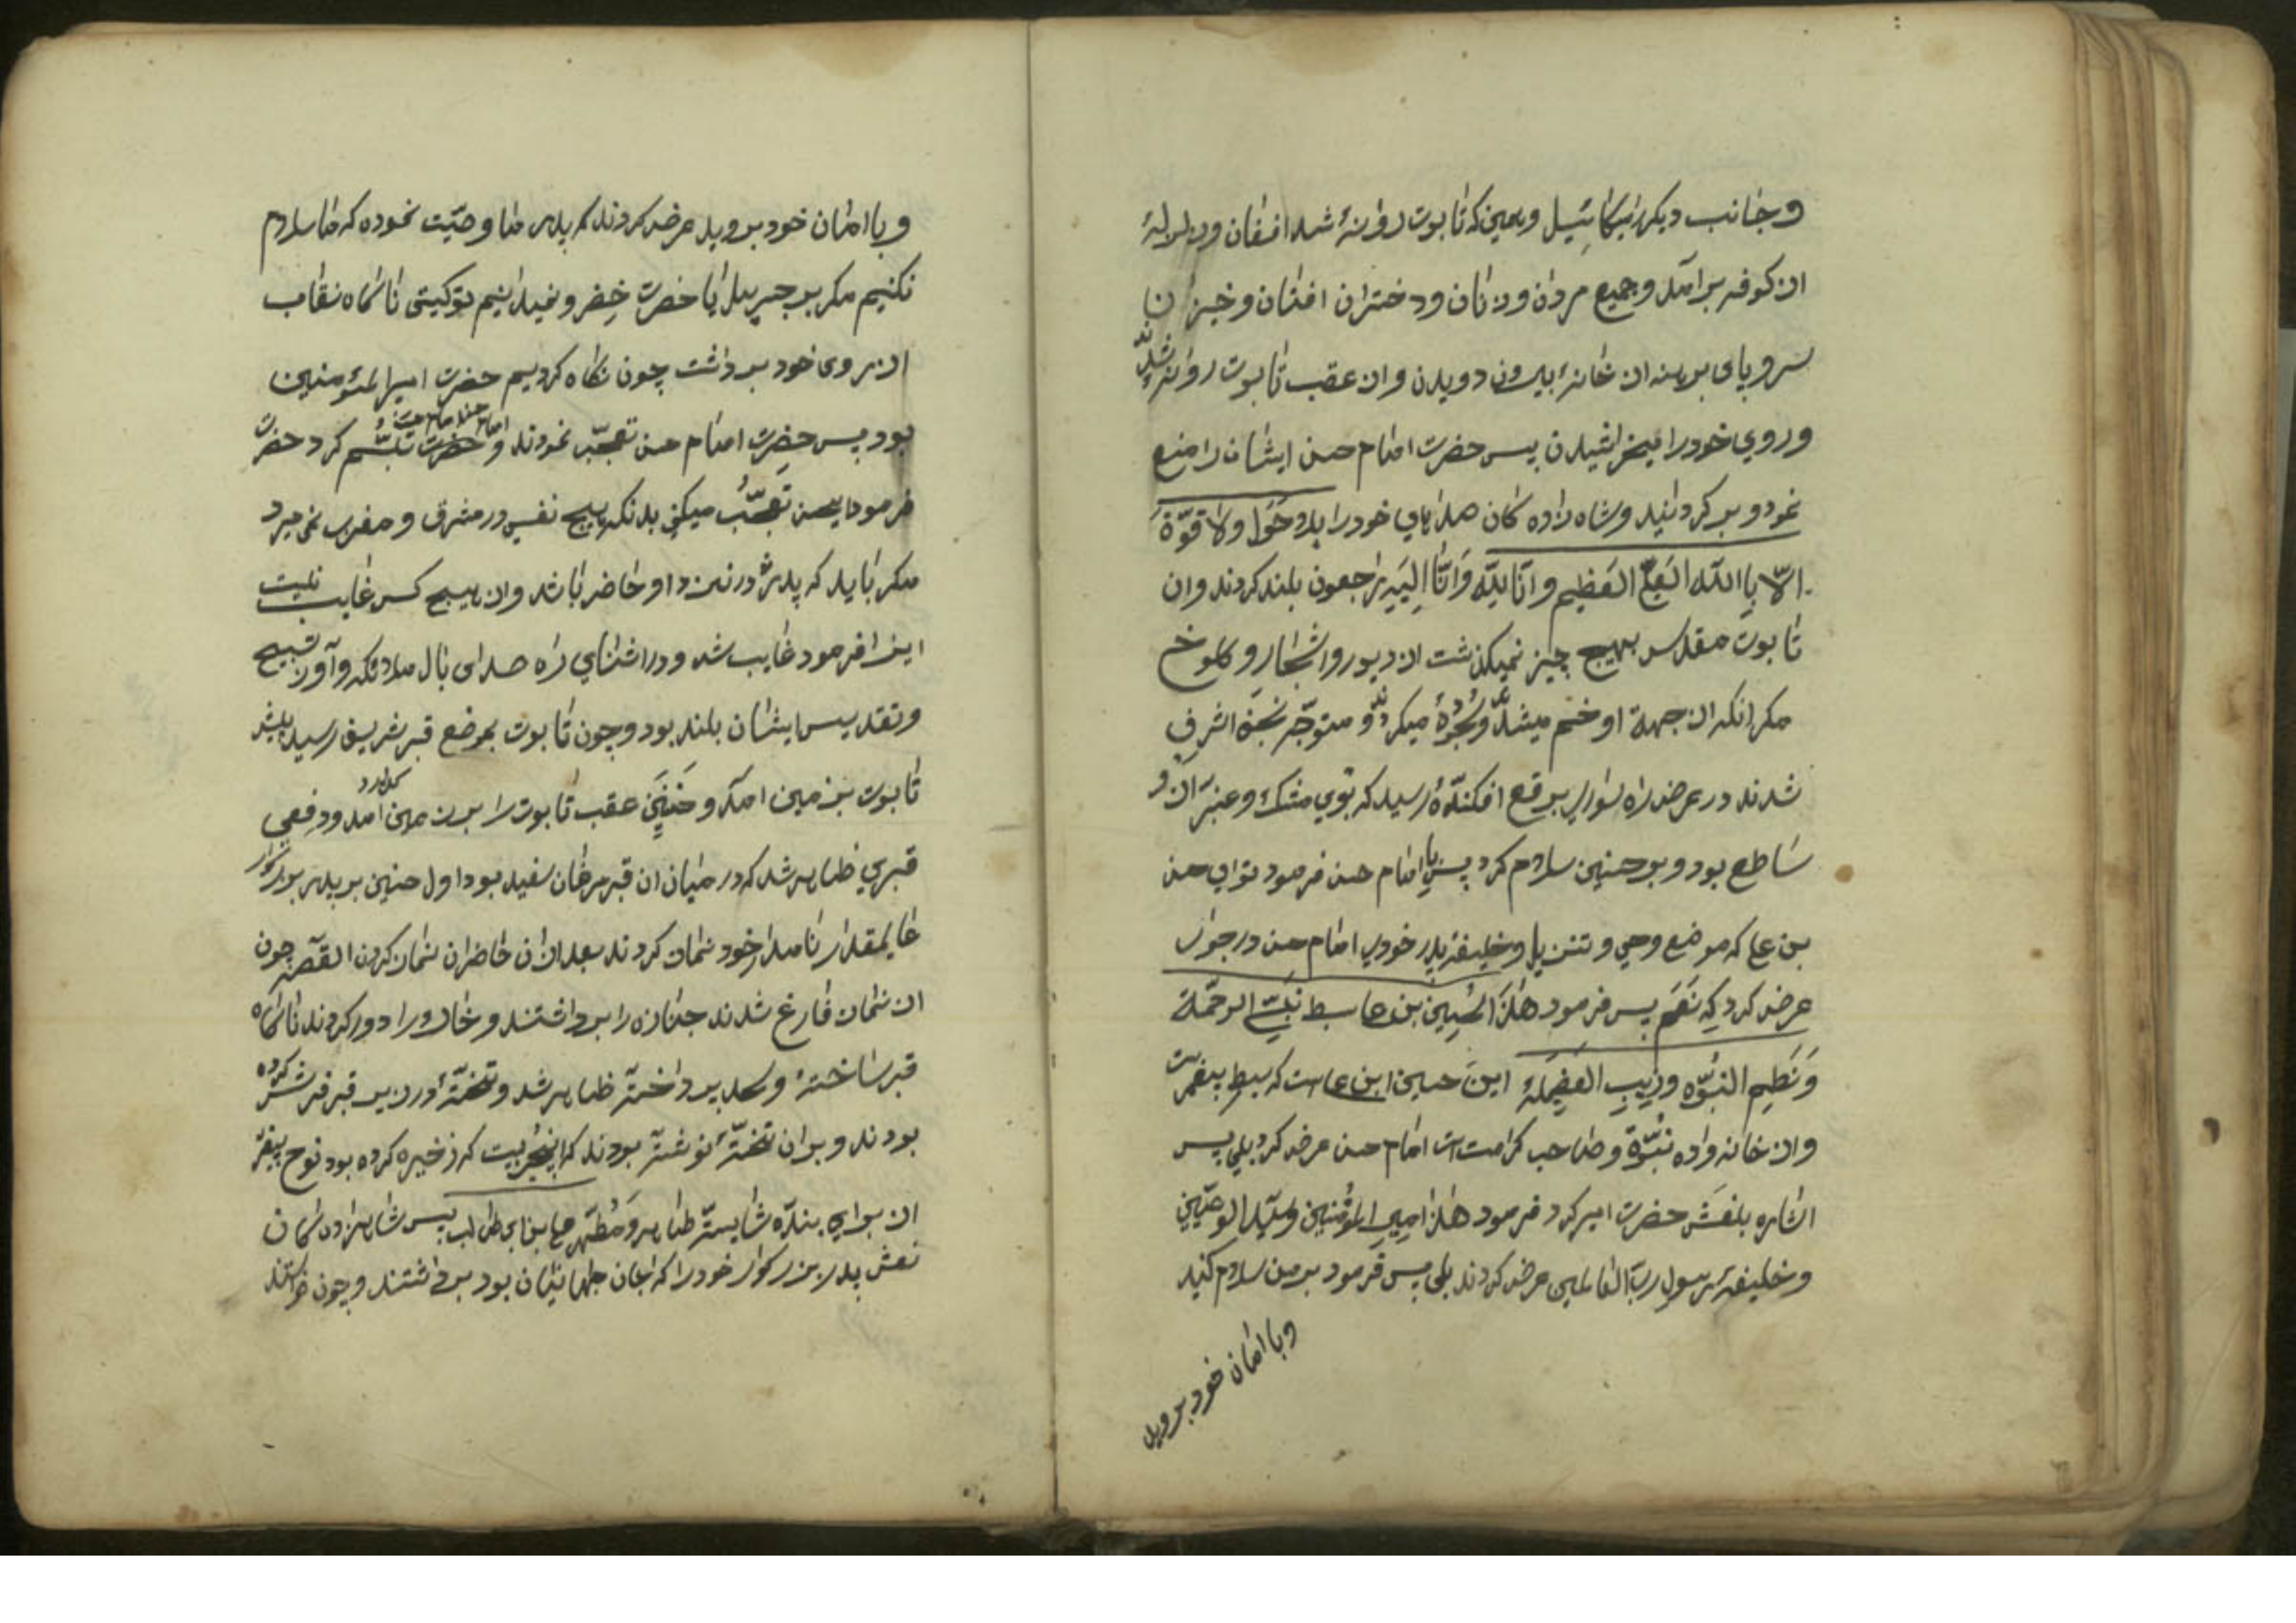 و جانب دیکر میکائیل و همین که تابوت روانهٔ شد افغان و ولولهٔ
از کوفه برآمد و جمیع مردان و زنان و دختران افتان و خیزان
سر و پای برهنه از خانهٔ بیرون دویدن و از عقب تابوت روانه شدند
و روي خود را میخراشیدن پس حضرت امام حسن ایشان را منع
نمود و بر کردانید و شاه زاده کان صداهاي خود را بلا حول ولا قوّة
الّا باالله العلّي العظیم و انّا لله و انّا الیه راجعون بلند کردند و ان
تابوت مقدس بهیج چیز نمیکذشت از دیور و اشجار و کلوخ
مکر انکه از جهة او خم میشد و سجدهٔ میکردند و متوجّه نجف اشرف
شدند در عرض راه سواری برقع افکندهٔ رسید که بوي مشک و عنبر از او
ساطع بود و بر حسنین سلام کرد پس با امام حسن فرمود توای حسن
بن علی که موضع وحي و تنزیل و خلیفهٔ پدر خودی امام حسن در جواب
عرض کرد که نعم پس فرمود هذا الحسین بن علی سبط نبيّ الرحمة
و نطیم النبوّه و زبیب الفضیلهٔ این حسین ابن علی است که سبط پیغمبر است
و از خانه واده نبوّة و صاحب کرامت است امام حسن عرض کرد بلي پس
اشاره بنعش حضرت امیر کرد فرمود هذا امیر المؤمنین و سیّد الوصیّین
و خلیفهٔ رسول ربّ العالمین عرض کردند بلی پس فرمود بر من سلام کنید
و با امان خود بروید
و با امان خود بروید عرض کردند که پدر ما وصیّت نموده که ما سلام
نکنیم مکر بر جبرییل یا حضرت خضر و نمیدانیم تو کیستی ناکاه نقاب
از روی خود برداشت چون نکاه کردیم حضرت امیر المؤمنین
بود پس حضرت امام حسن تعجّب نمودند و حضرت تبسّم کرد حضرت
فرمود ایحسن تعجّب میکني بدانکه هیچ نفسي در مشرق و مغرب نمیمیرد
مکر باید که پدرت در نزد او حاضر باشد و از هیچ کس غایب نیست
این را فرمود غایب شد و در اثنای راه صدای بال ملائکه و آواز تسبیح
و تقدیس ایشان بلند بود و چون تابوت بموضع قبر شریف رسید پیش
تابوت بزمین امد و حسنین عقب تابوت را بزمین
قبري ظاهر شد که در میان ان قبر مرغان سفید بود اول حسنین بر پدر بزرکوار
عالیمقدار نامدار خود نماز کردند بعد از ان حاضران نماز کردن القصّه چون
از نماز فارغ شدند جنازه را برداشتند و خاک را دور کردند ناکاه
قبر ساختهٔ و لحد پرداخته ظاهر شد و تختهٔ در زیر قبر فرش کرده
بودند و بران تختهٔ نوشته بودند که این قبریست که ذخیره کرده بود نوح پیغمبر
از برای بندّه شایستهٔ طاهر و مُطهّر علی بن ابی طالب پس شاهزاده کان
نعش پدر بزرکوار خود را که جان جهانیان بود برداشتند و چون خواستند